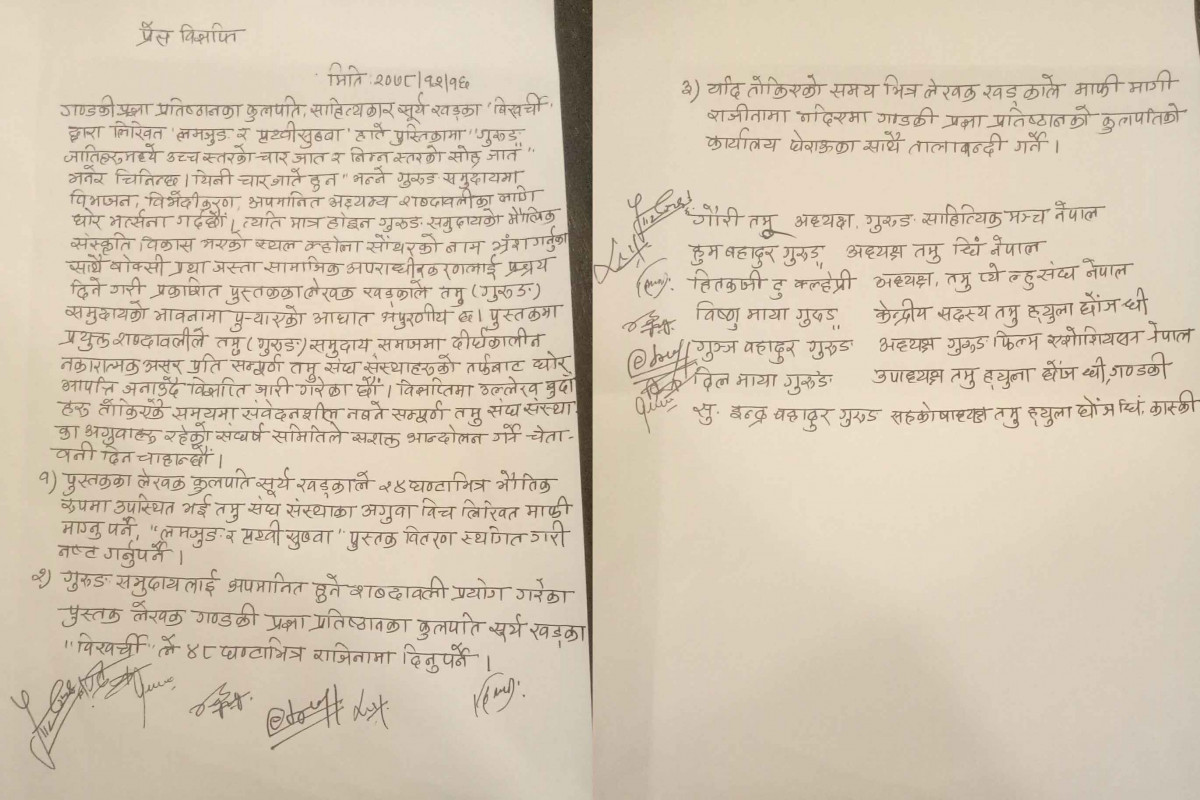 प्रेस विज्ञप्ति
मिति: २०७८/१२/१६
गण्डकी प्रज्ञा प्रतिष्ठानका कुलपति, साहित्यकार सूर्य खड्का 'बिखर्ची'
द्वारा लिखित 'लमजुङ र पृथ्वीसुब्बा' हाते पुस्तिकामा "गुरुङ
जातिहरुमध्ये उच्च स्तरको चार जात र निम्न स्तरको सोह्र जात"
भनेर चिनिन्छ। यिनी चार जाते हुन" भन्ने गुरुङ समुदायमा
विभाजन, विभेदीकरण, अपमानित असभ्य शब्दावलीका लागि
घोर भर्त्सना गर्दछौं। त्यति मात्र होइन गुरुङ समुदायको मौलिक
संस्कृति विकास भएको स्थल क्होना सोंथरको नाम भ्रंश गर्नुका
साथै बोक्सी प्रथा जस्ता सामाजिक अपराधीकरणलाई प्रश्रय
दिने गरी प्रकाशित पुस्तकका लेखक खड्काले तमु (गुरुङ)
समुदायको भावनामा पुर्‍याएको आघात अपुरणीय छ। पुस्तकमा
प्रयुक्त शब्दावलीले तमु (गुरुङ) समुदाय समाजमा दीर्घकालीन
नकारात्मक असर प्रति सम्पूर्ण तमु संघ संस्थाहरुको तर्फबाट घोर
आपत्ति जनाउँदै विज्ञप्ति जारी गरेका छौं। विज्ञप्तिमा उल्लेख बुदा
हरु तोकिएकै समयमा संवेदनशील नबने सम्पूर्ण तमु संघ संस्था
का अगुवाहरु रहेको संघर्ष समितिले सशक्त आन्दोलन गर्ने चेता-
वनी दिन चाहान्छौं।
१) पुस्तकका लेखक कुलपति सूर्य खड्काले २४ घण्टाभित्र भौतिक
रुपमा उपस्थित भई तमु संघ संस्थाका अगुवा बिच लिखित माफी
माग्नु पर्ने, "लमजुङ र पृथ्वी सुब्बा" पुस्तक वितरण स्थगित गरी
नष्ट गर्नुपर्ने।
२) गुरुङ समुदायलाई अपमानित हुने शब्दावली प्रयोग गरेका
पुस्तक लेखक गण्डकी प्रज्ञा प्रतिष्ठानका कुलपति सूर्य खड्का
"बिखर्ची" ले ४८ घण्टाभित्र राजिनामा दिनुपर्ने।
३) यदि तोकिएको समय भित्र लेखक खड्काले माफी मागी
राजीनामा नदिएमा गण्डकी प्रज्ञा प्रतिष्ठानको कुलपतिको
कार्यालय घेराऊका साथै तालाबन्दी गर्ने।
गौरी तमु अध्यक्ष, गुरुङ साहित्यिक मञ्च नेपाल
हुम बहादुर गुरुङ अध्यक्ष तमु धिं नेपाल
हितकाजी अध्यक्ष, तमु प्ये ल्हु संघ नेपाल
विष्णु माया गुरुङ केन्द्रीय सदस्य तमु ह्युला छोंज धी
गुञ्ज बहादुर गुरुङ अध्यक्ष गुरुङ फिल्म एशोसियसन नेपाल
दिल माया गुरुङ उपाध्यक्ष तमु ह्युला छोंज धी, गण्डकी
सु. इन्द्र बहादुर गुरुङ सहकोषाध्यक्ष तमु ह्युला छोंज धिं, कास्की